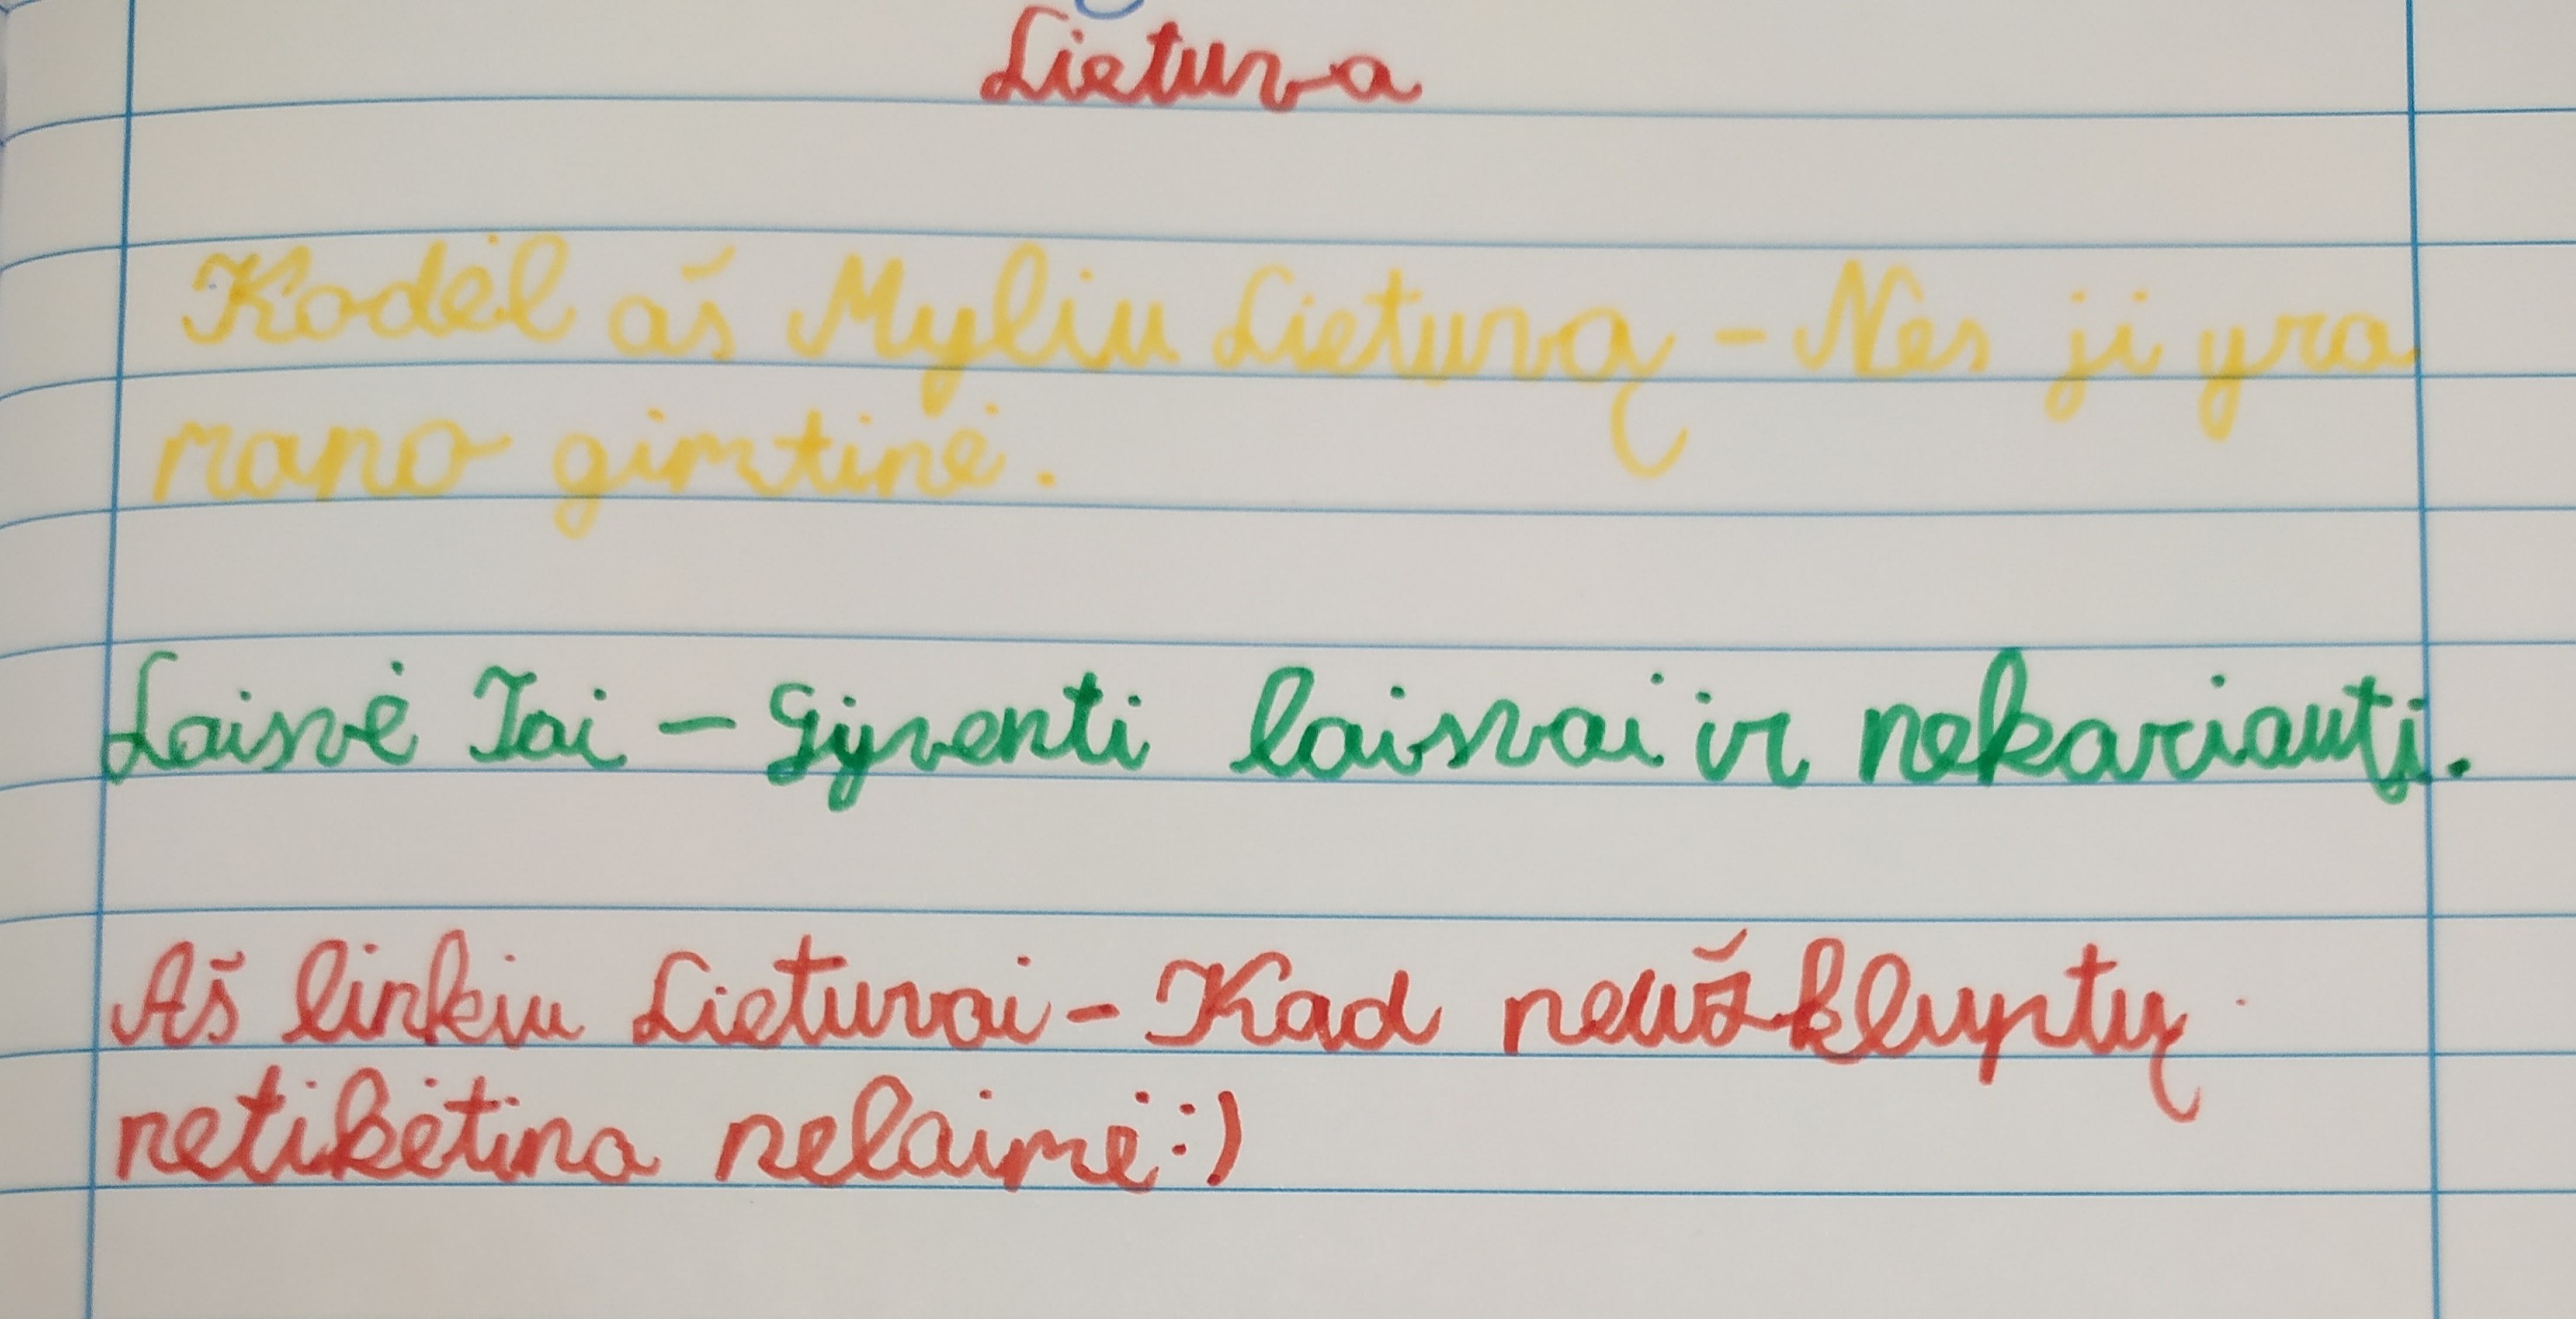 Lietuva
Kodėl aš Myliu Lietuvą - Nes ji yra
mano gimtinė.
Laisvė Tai - Gyventi laisvai ir nekariauti.
Aš linkiu Lietuvai - Kad neužkluptų
netikėtina nelaimė :)